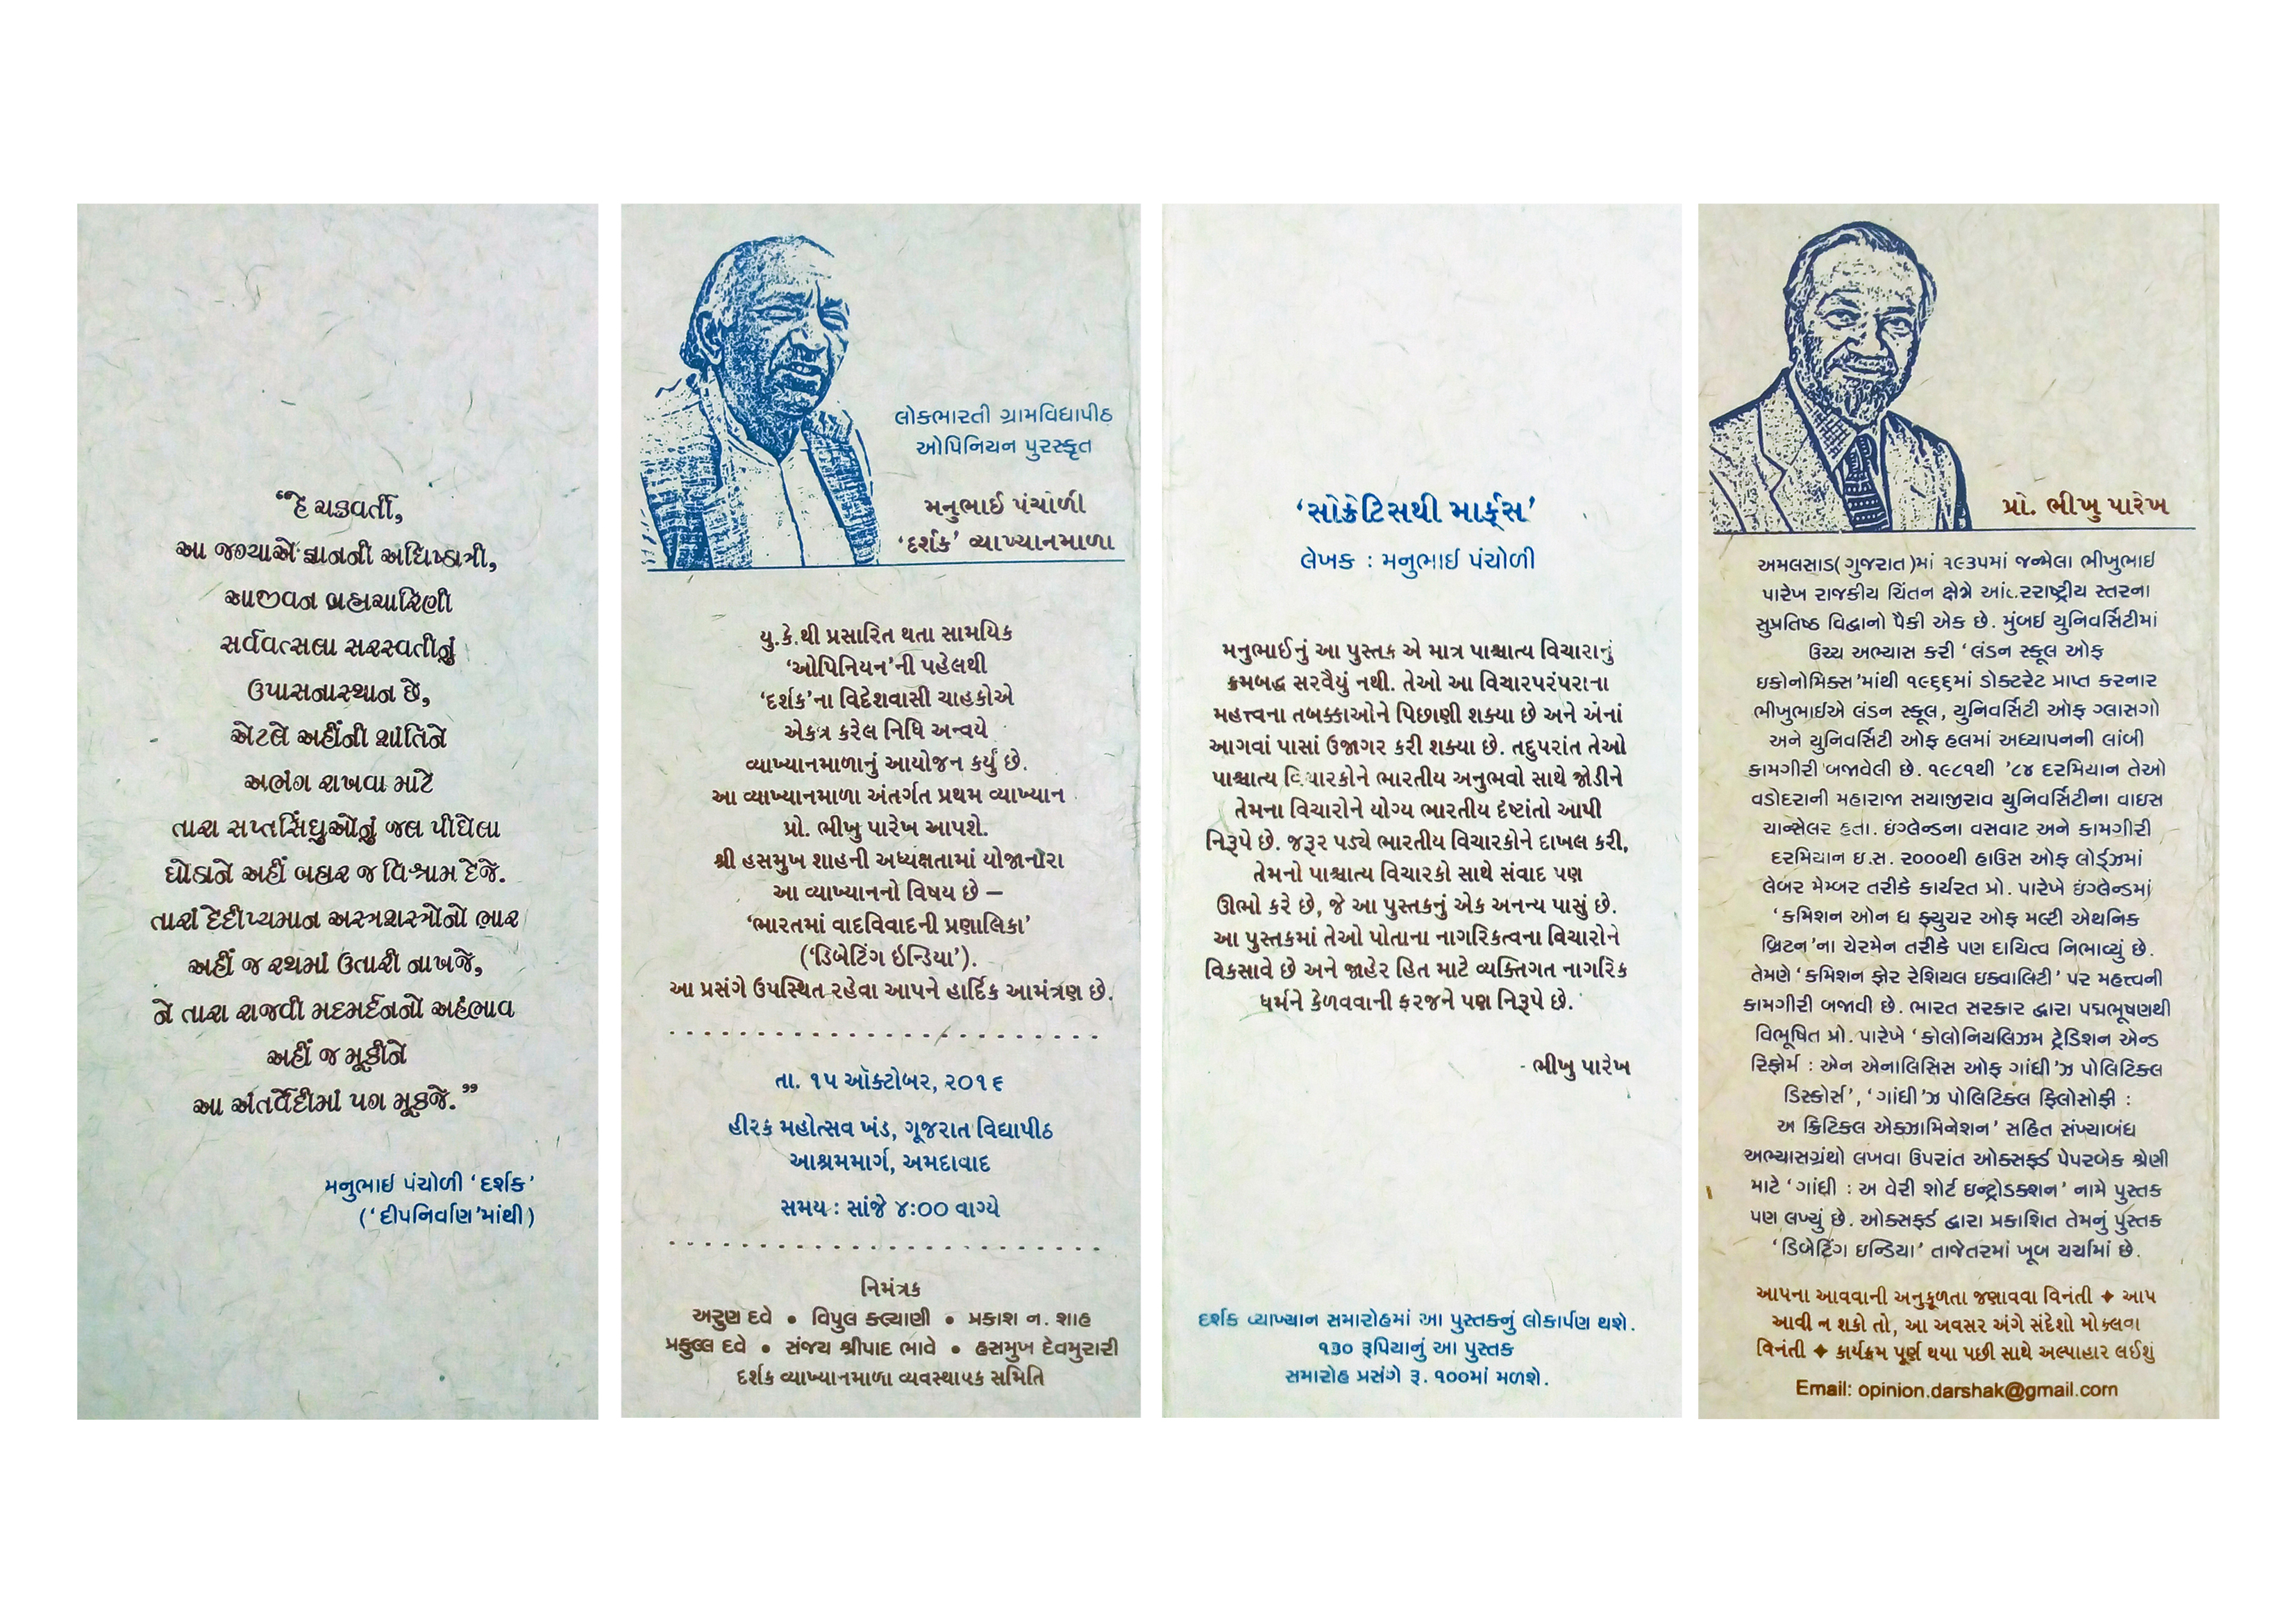 “હે ચક્રવર્તી,
આ જગ્યાએ જ્ઞાનની અધિષ્ઠાત્રી,
આજીવન બ્રહ્મચારિણી
સર્વવત્સલા સરસ્વતીનું
ઉપાસનાસ્થાન છે,
એટલે અહીંની શાંતિને
અભંગ રાખવા માટે
તારા સપ્તસિંધુઓનું જલ પીધેલા
ઘોડાને અહીં બહાર જ વિશ્રામ દેજે.
તારાં દેદીપ્યમાન અસ્ત્રશસ્ત્રોનો ભાર
અહીં જ રથમાં ઉતારી નાખજે,
ને તારા રાજવી મદમર્દનનો અહંભાવ
અહીં જ મૂકીને
આ અંતર્વેદીમાં પગ મૂકજે.”
મનુભાઈ પંચોળી ‘દર્શક’
(‘દીપનિર્વાણ’માંથી)
લોકભારતી ગ્રામવિદ્યાપીઠ
ઓપિનિયન પુરસ્કૃત
મનુભાઈ પંચોળી
‘દર્શક’ વ્યાખ્યાનમાળા
યુ.કે.થી પ્રસારિત થતા સામયિક
‘ઓપિનિયન’ની પહેલથી
‘દર્શક’ના વિદેશવાસી ચાહકોએ
એકત્ર કરેલ નિધિ અન્વયે
વ્યાખ્યાનમાળાનું આયોજન કર્યું છે.
આ વ્યાખ્યાનમાળા અંતર્ગત પ્રથમ વ્યાખ્યાન
પ્રો. ભીખુ પારેખ આપશે.
શ્રી હસમુખ શાહની અધ્યક્ષતામાં યોજાનારા
આ વ્યાખ્યાનનો વિષય છે –
‘ભારતમાં વાદવિવાદની પ્રણાલિકા’
(‘ડિબેટિંગ ઇન્ડિયા’).
આ પ્રસંગે ઉપસ્થિત રહેવા આપને હાર્દિક આમંત્રણ છે.
તા. ૧૫ ઑક્ટોબર, ૨૦૧૬
હીરક મહોત્સવ ખંડ, ગૂજરાત વિદ્યાપીઠ
આશ્રમમાર્ગ, અમદાવાદ
સમય : સાંજે ૪:૦૦ વાગ્યે
નિમંત્રક
અરુણ દવે • વિપુલ કલ્યાણી • પ્રકાશ ન. શાહ
પ્રફુલ્લ દવે • સંજય શ્રીપાદ ભાવે • હસમુખ દેવમુરારી
દર્શક વ્યાખ્યાનમાળા વ્યવસ્થાપક સમિતિ
‘સોક્રેટિસથી માર્ક્સ’
લેખક : મનુભાઈ પંચોળી
મનુભાઈનું આ પુસ્તક એ માત્ર પાશ્ચાત્ય વિચારાનું
ક્રમબદ્ધ સરવૈયું નથી. તેઓ આ વિચારપરંપરાના
મહત્ત્વના તબક્કાઓને પિછાણી શક્યા છે અને એનાં
આગવાં પાસાં ઉજાગર કરી શક્યા છે. તદુપરાંત તેઓ
પાશ્ચાત્ય વિચારકોને ભારતીય અનુભવો સાથે જોડીને
તેમના વિચારોને યોગ્ય ભારતીય દૃષ્ટાંતો આપી
નિરૂપે છે. જરૂર પડ્યે ભારતીય વિચારકોને દાખલ કરી,
તેમનો પાશ્ચાત્ય વિચારકો સાથે સંવાદ પણ
ઊભો કરે છે, જે આ પુસ્તકનું એક અનન્ય પાસું છે.
આ પુસ્તકમાં તેઓ પોતાના નાગરિકત્વના વિચારોને
વિકસાવે છે અને જાહેર હિત માટે વ્યક્તિગત નાગરિક
ધર્મને કેળવવાની ફરજને પણ નિરૂપે છે.
- ભીખુ પારેખ
દર્શક વ્યાખ્યાન સમારોહમાં આ પુસ્તકનું લોકાર્પણ થશે.
૧૩૦ રૂપિયાનું આ પુસ્તક
સમારોહ પ્રસંગે રૂ. ૧૦૦માં મળશે.
પ્રો. ભીખુ પારેખ
અમલસાડ(ગુજરાત)માં ૧૯૩૫માં જન્મેલા ભીખુભાઈ
પારેખ રાજકીય ચિંતન ક્ષેત્રે આંતરરાષ્ટ્રીય સ્તરના
સુપ્રતિષ્ઠ વિદ્વાનો પૈકી એક છે. મુંબઈ યુનિવર્સિટીમાં
ઉચ્ચ અભ્યાસ કરી ‘લંડન સ્કૂલ ઓફ
ઇકોનોમિક્સ’માંથી ૧૯૬૬માં ડોક્ટરેટ પ્રાપ્ત કરનાર
ભીખુભાઈએ લંડન સ્કૂલ, યુનિવર્સિટી ઓફ ગ્લાસગો
અને યુનિવર્સિટી ઓફ હલમાં અધ્યાપનની લાંબી
કામગીરી બજાવેલી છે. ૧૯૮૧થી ’૮૪ દરમિયાન તેઓ
વડોદરાની મહારાજા સયાજીરાવ યુનિવર્સિટીના વાઇસ
ચાન્સેલર હતા. ઇંગ્લેન્ડના વસવાટ અને કામગીરી
દરમિયાન ઇ.સ. ૨૦૦૦થી હાઉસ ઓફ લોર્ડ્ઝમાં
લેબર મેમ્બર તરીકે કાર્યરત પ્રો. પારેખે ઇંગ્લેન્ડમાં
‘કમિશન ઓન ધ ફ્યુચર ઓફ મલ્ટી એથનિક
બ્રિટન’ના ચેરમેન તરીકે પણ દાયિત્વ નિભાવ્યું છે.
તેમણે ‘કમિશન ફોર રેશિયલ ઇક્વાલિટી’ પર મહત્ત્વની
કામગીરી બજાવી છે. ભારત સરકાર દ્વારા પદ્મભૂષણથી
વિભૂષિત પ્રો. પારેખે ‘કોલોનિયલિઝમ ટ્રેડિશન એન્ડ
રિફોર્મ : એન એનાલિસિસ ઓફ ગાંધી’ઝ પોલિટિક્લ
ડિસ્કોર્સ’, ‘ગાંધી’ઝ પોલિટિક્લ ફિલોસોફી :
અ ક્રિટિકલ એક્ઝામિનેશન’ સહિત સંખ્યાબંધ
અભ્યાસગ્રંથો લખવા ઉપરાંત ઓક્સફર્ડ પેપરબેક શ્રેણી
માટે ‘ગાંધી : અ વેરી શોર્ટ ઇન્ટ્રોડક્શન’ નામે પુસ્તક
પણ લખ્યું છે. ઓક્સફર્ડ દ્વારા પ્રકાશિત તેમનું પુસ્તક
‘ડિબેટિંગ ઇન્ડિયા’ તાજેતરમાં ખૂબ ચર્ચામાં છે.
આપના આવવાની અનુકૂળતા જણાવવા વિનંતી ✦ આપ
આવી ન શકો તો, આ અવસર અંગે સંદેશો મોકલવા
વિનંતી ✦ કાર્યક્રમ પૂર્ણ થયા પછી સાથે અલ્પાહાર લઈશું
Email: opinion.darshak@gmail.com